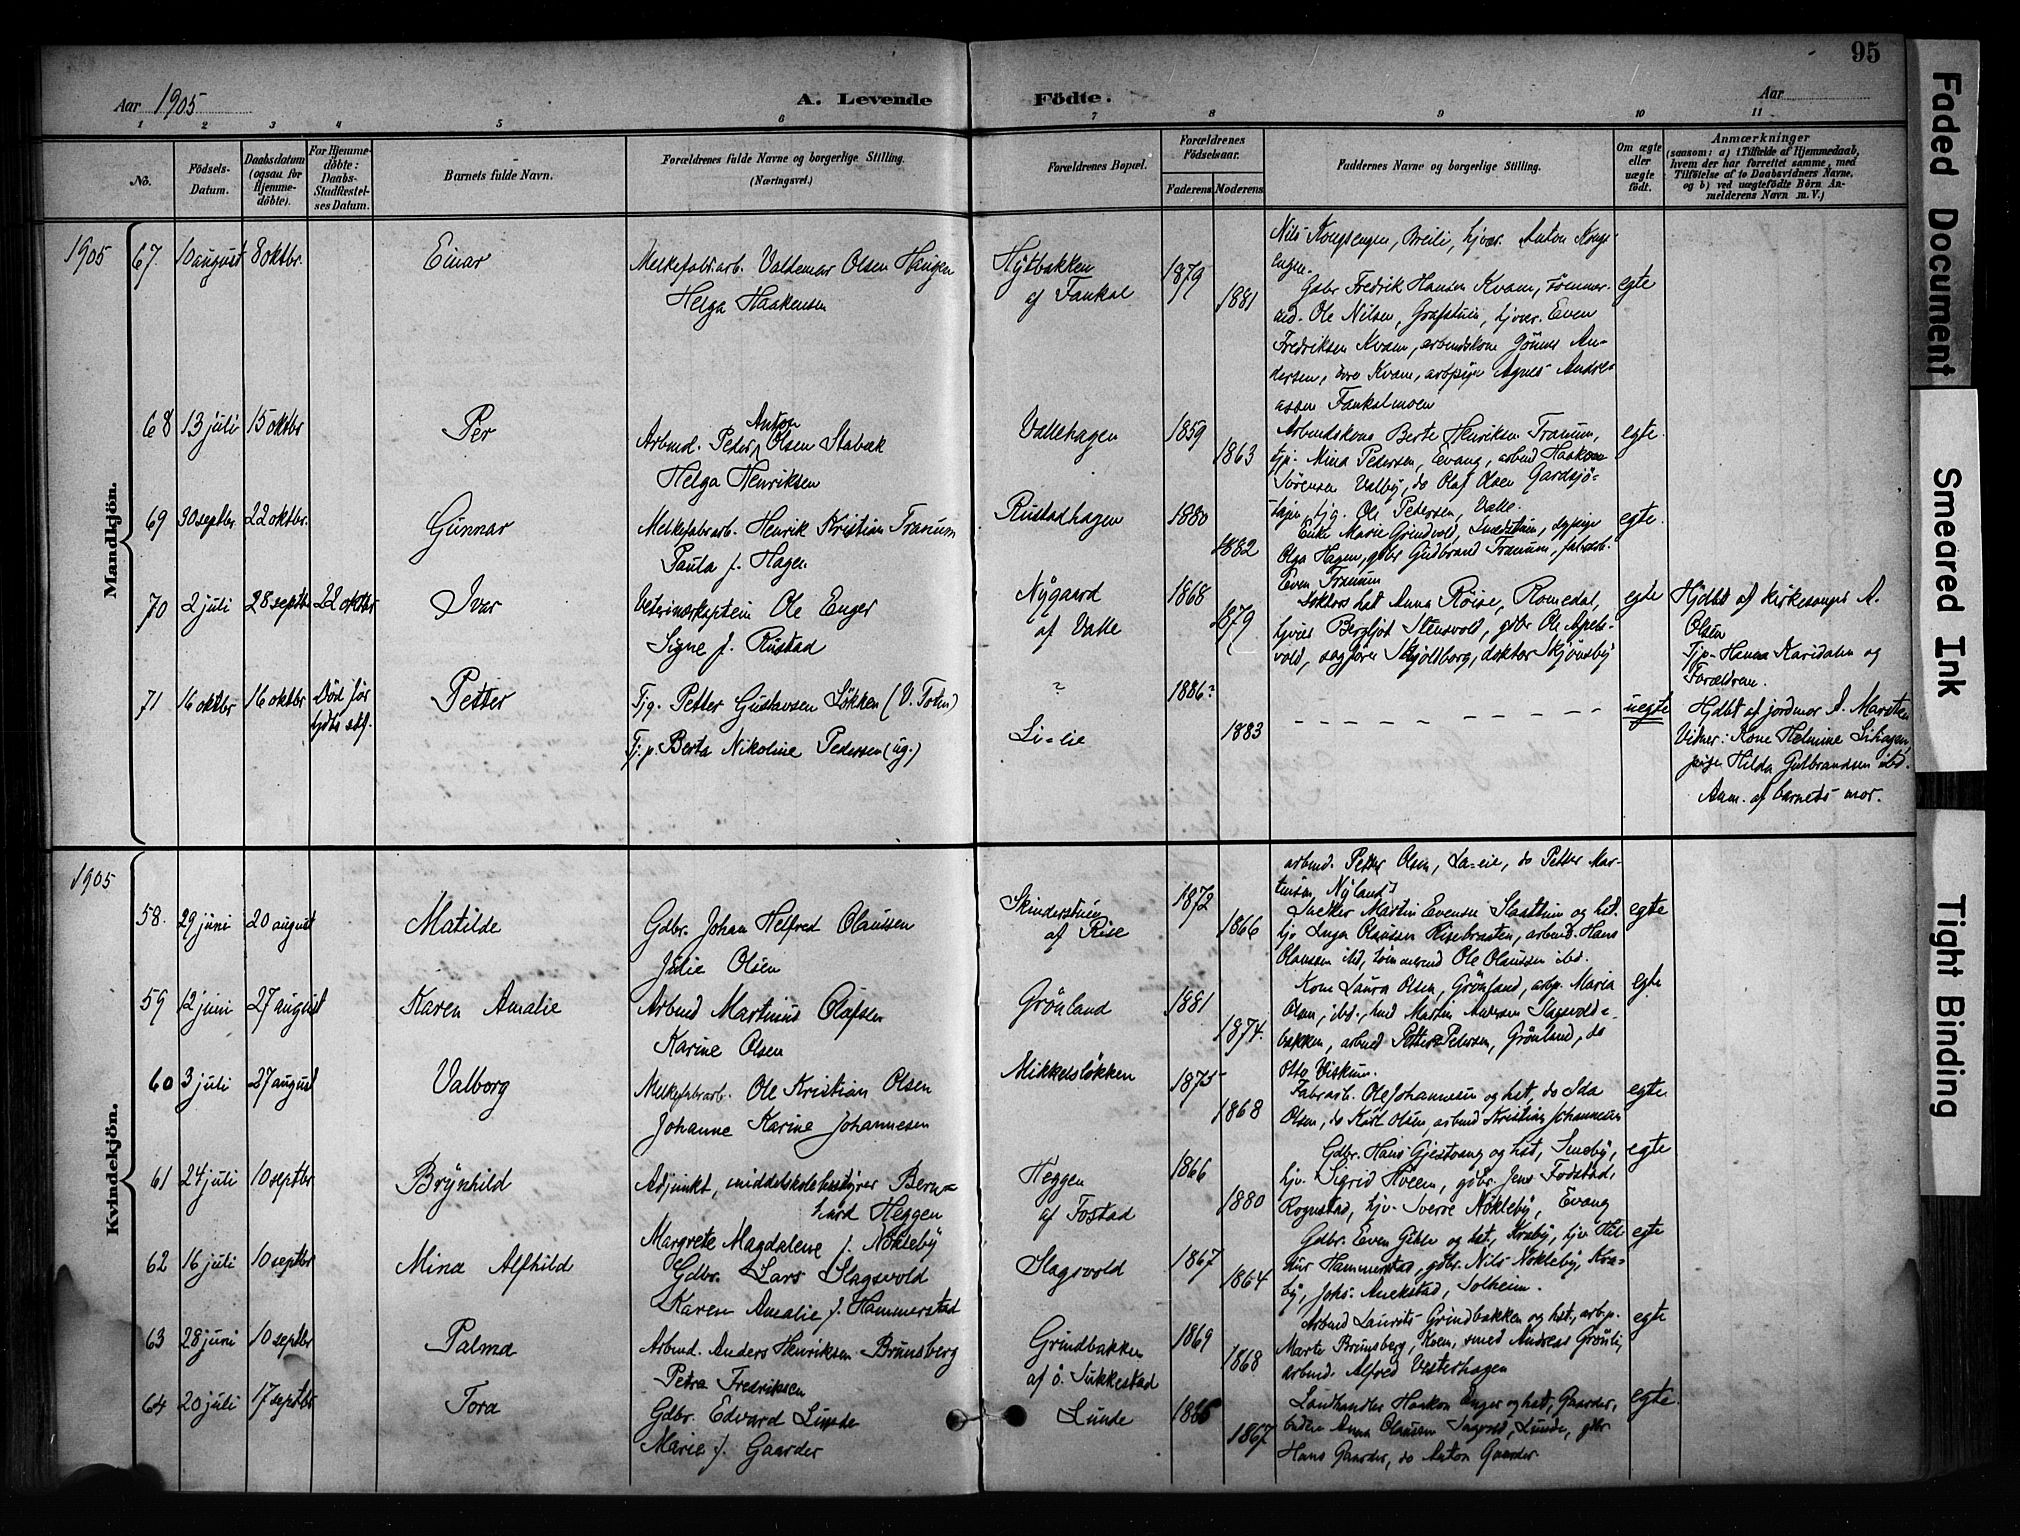 95
Aar 1905
A. Levende Födte.
Aar
1 2 3 4 5 6 7 8 9 10 11
No.
Födsels-Datum.
Daabsdatum (ogsaa for Hjemmedöbte).
For Hjemmedöbte: Daabs-Stadfæstelses Datum.
Barnets fulde Navn.
Forældrenes fulde Navne og borgerlige Stilling.
(Næringsvei.)
Forældrenes Bopæl.
Forældrenes Födselsaar.
Faderens Moderens
Faddernes Navne og borgerlige Stilling.
Om ægte eller uægte födt.
Anmærkninger
(saasom: a) i Tilfælde af Hjemmedaab,
hvem der har forrettet samme, med
Tilföielse af to Daabsvidners Navne,
og b) ved uægtefödte Börn An-
melderens Navn m. V.)
Mandkjön.
1905 67. 10 august 8 oktbr. Einar
Melkefabr.arb. Valdemar Olsen Haugen
Helga Haakensen
Hytbakken
af Fankal
1879
1881
Nils Kongsengen, Breili, hjvær. Anton Kongs-
engen.
Gdbr Fredrik Hansen Kvam, tömmer-
Ole Nilsen, Grafstuen, hjvær. Even
Fredriksen Kvam, arbeidskone Gönner An-
dersen, övre Kvam, arbpige Agnes Andre-
assen Fankalmoen
egte
68 13 juli 15 oktbr Per
Anton
Arbmd. Peder Olsen Stabæk
Helga Henriksen
Vallehagen
1859
1863
Arbeidskone Berte Henriksen Tranum,
tjp. Mina Pedersen, Evang, arbmd Haakon
Sörensen Valby, do Olaf Olsen Gardsjö-
hagen, tjg. Ole Petersen, Valle.
egte.
69 30 septbr. 22 oktbr. Gunnar
Melkefabr.arb. Henrik Kristian Tranum
Paula f. Hagen
Rustadhagen
1880
1882
Enke Marie Grindvold, sypige
Olga Hagen, gdbr Gudbrand Tranum, fabr.arb.
Even Tranum
egte.
70 2 juli 28 septbr 22 oktbr Ivar
Veterinærkaptein Ole Enger
Signe f. Rustad
Nygaard
af Valle
1868
1879
Doktors hst Anna Röise, Romedal,
hjvær Bergljot Stensvold, gdbr Ole Apels-
vold, sagförer Skjoldborg, doktor Skjönsby
egte
Hjdbt af kirkesanger A.
Olsen
Tjp. Hanna Karidalen og
Forældrene.
71 16 oktbr 16 oktbr Död för hjdbs stf. Petter
Tjg. Petter Gustavsen Lökken (V. Toten)
Tj. p. Berta Nikoline Pedersen (ug.)
?
Li-eie
1886?
1883
uegte
Hjdbt af jordmor A. Marsten
Vidner: Kone Helmine Lihagen,
pige Hilda Gulbrandsen ibd.
Anm. af barnets mor.
Kvindekjön.
1905
58. 29 juni 20 august Matilde
Gdbr. Johan Helfred Olaussen
Julie Olsen
Skinderstuen
af Rise
1872
1866
arbmd. Petter Olsen, La-eie, do Petter Mar-
tinsen Nyland
Snekker Martin Evensen Slaattum og hst.
hjv Inga Olaussen Risebraaten, arbmd. Hans
Olaussen ibd, tömmermd Ole Olaussen ibd.
egte
59 12 juni 27 august Karen Amalie
Arbmd Martinus Olafsen
Karine Olsen
Grönland
1881
1874.
Kone Laura Olsen, Grönland, arbp. Maria
Olsen, ibd., smed Martin Andersen Slagsvold-
bakken, arbmd Petter Petersen, Grönland, do
Otto Viskum.
egte
60 3 juli 27 august Valborg
Melkefabrarb. Ole Kristian Olsen
Johanne Karine Johannesen
Mikkelslökken
1875
1868
Fabrarb. Ole Johannesen og hst, do Ida
Olsen, do Karl Olsen, arbmd Kristian Johannesen
egte
61 24 juli 10 septbr Brynhild
Adjunkt, middelskolebestyrer Bern-
hard Heggen
Margrete Magdalene f. Nökleby
Heggen
af Fostad
1866
1880
Gdbr. Hans Gjestvang og hst, Smeby,
hjv. Sigrid Hveem, gdbr. Jens Fodstad,
Rognstad, hjv. Sverre Nökleby, Evang
egte
62 16 juli 10 septbr Mina Alfhild
Gdbr. Lars Slagsvold
Karen Amalie f. Hammerstad
Slagsvold
1867
1864
Gdbr. Even Gihle og hst, Kraby, hjv Hil-
dur Hammerstad, gdbr. Nils Nökleby, Kra-
by, Johs. Aurstad, Solheim.
egte
63 28 juni 10 septbr Palma
Arbmd. Anders Henriksen Brunsberg
Petra Fredriksen
Grindbakken
af ö. Sukkestad
1869
1868
Arbmd Laurits Grindbakken og hst, arbp.
Marte Brunsberg, Koen, smed Andreas Grönli,
arbmd. Alfred Vesterhagen
egte
64 20 juli 17 septbr Tora
Gdbr. Edvard Lunde
Marie f. Gaarder
Lunde
1865
1867
Landhandler Haakon Enger og hst, Gaarder,
Anna Olaussen Lunde, gdbr
Hans Gaarder, do Anton Gaarder
egte.
Faded Document
Smeared Ink
Tight Binding